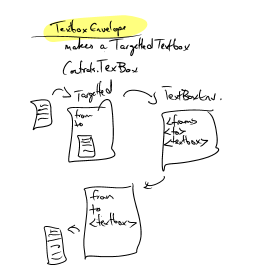 Textbox Envelope
makes a Targetted Textbox
Controls.TexBox
Targetted
TextBoxEnv.
from
to
<from>
<to>
<textbox>
from
to
<textbox>